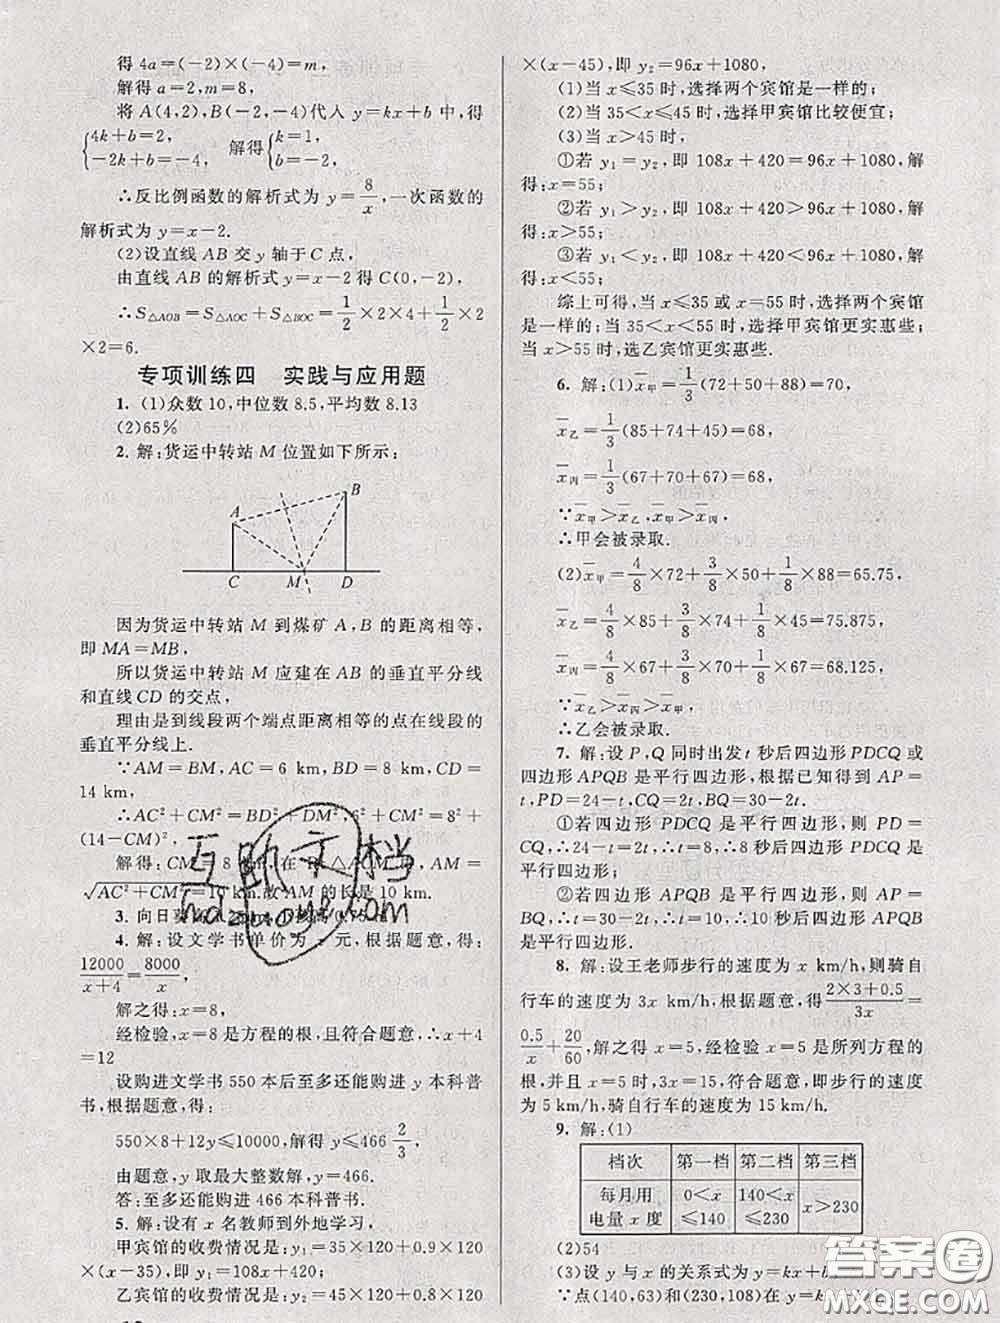 得 4a=(-2)×(-4)=m,
解得 a=2,m=8,
将 A(4,2),B(-2,-4)代人 y=kx+b 中,得
{4k+b=2, -2k+b=-4, 解得{k=1, b=-2.
∴反比例函数的解析式为 y=8/x,一次函数的
解析式为 y=x-2.
(2)设直线 AB 交 y 轴于 C 点,
由直线 AB 的解析式 y=x-2 得 C(0,-2),
∴S△AOB=S△AOC+S△BOC=1/2×2×4+1/2×2
×2=6.
专项训练四 实践与应用题
1. (1)众数 10,中位数 8.5,平均数 8.13
(2)65%
2. 解:货运中转站 M 位置如下所示:
A
B
C
M
D
因为货运中转站 M 到煤矿 A,B 的距离相等,
即 MA=MB,
所以货运中转站 M 应建在 AB 的垂直平分线
和直线 CD 的交点,
理由是到线段两个端点距离相等的点在线段的
垂直平分线上.
∵AM=BM,AC=6 km,BD=8 km,CD=
14 km,
∴AC²+CM²=BD²+DM²,6²+CM²=8²+
(14-CM)²,
解得:CM=8 km,在 Rt△ACM 中,AM=
√AC²+CM²=10 km.故 AM 的长是 10 km.
3. 向日葵
4. 解:设文学书单价为 x 元,根据题意,得:
12000/(x+4)=8000/x,
解之得:x=8,
经检验,x=8 是方程的根,且符合题意,∴x+4
=12
设购进文学书 550 本后至多还能购进 y 本科普
书,根据题意,得:
550×8+12y≤10000,解得 y≤466 2/3,
由题意,y 取最大整数解,y=466.
答:至多还能购进 466 本科普书.
5. 解:设有 x 名教师到外地学习,
甲宾馆的收费情况是:y₁=35×120+0.9×120
×(x-35),即 y₁=108x+420;
乙宾馆的收费情况是:y₂=45×120+0.8×120
×(x-45),即 y₂=96x+1080,
(1)当 x≤35 时,选择两个宾馆是一样的;
(2)当 35<x≤45 时,选择甲宾馆比较便宜;
(3)当 x>45 时,
①若 y₁=y₂,即 108x+420=96x+1080,解
得:x=55;
②若 y₁>y₂,即 108x+420>96x+1080,解
得:x>55;
③若 y₁<y₂,即 108x+420<96x+1080,解
得:x<55;
综上可得,当 x≤35 或 x=55 时,选择两个宾馆
是一样的;当 35<x<55 时,选择甲宾馆更实惠些;
当 x>55 时,选乙宾馆更实惠些.
6. 解:(1)x̄甲=1/3(72+50+88)=70,
x̄乙=1/3(85+74+45)=68,
x̄丙=1/3(67+70+67)=68,
∵x̄甲>x̄乙,x̄甲>x̄丙,
∴甲会被录取.
(2)x̄甲=4/8×72+3/8×50+1/8×88=65.75,
x̄乙=4/8×85+3/8×74+1/8×45=75.875,
x̄丙=4/8×67+3/8×70+1/8×67=68.125,
∵x̄乙>x̄丙>x̄甲,
∴乙会被录取.
7. 解:设 P,Q 同时出发 t 秒后四边形 PDCQ 或
四边形 APQB 是平行四边形,根据已知得到 AP=
t,PD=24-t,CQ=2t,BQ=30-2t.
①若四边形 PDCQ 是平行四边形,则 PD=
CQ,∴24-t=2t,∴t=8,∴8 秒后四边形 PDCQ 是
平行四边形;
②若四边形 APQB 是平行四边形,则 AP=
BQ,∴t=30-2t,∴t=10,∴10 秒后四边形 APQB
是平行四边形.
8. 解:设王老师步行的速度为 x km/h,则骑自
行车的速度为 3x km/h,根据题意,得(2×3+0.5)/3x=
0.5/x+20/60,解之得 x=5,经检验 x=5 是所列方程的
根,并且 x=5 时,3x=15,符合题意,即步行的速度
为 5 km/h,骑自行车的速度为 15 km/h.
9. 解:(1)
档次 第一档 第二档 第三档
每月用电量 x 度 0<x≤140 140<x≤230 x>230
(2)54
(3)设 y 与 x 的关系式为 y=kx+b.
∵点(140,63)和(230,108)在 y=kx+
互助文档
hdzuoye.com
答案圈
MXQE.COM